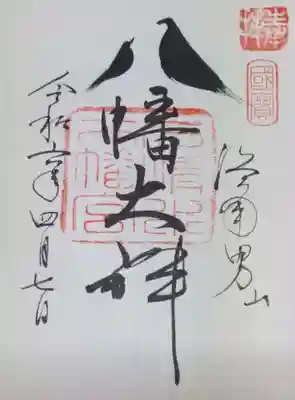 奉拝
國寶
洛南男山
八幡大神
石清水八幡宮
令和六年四月七日